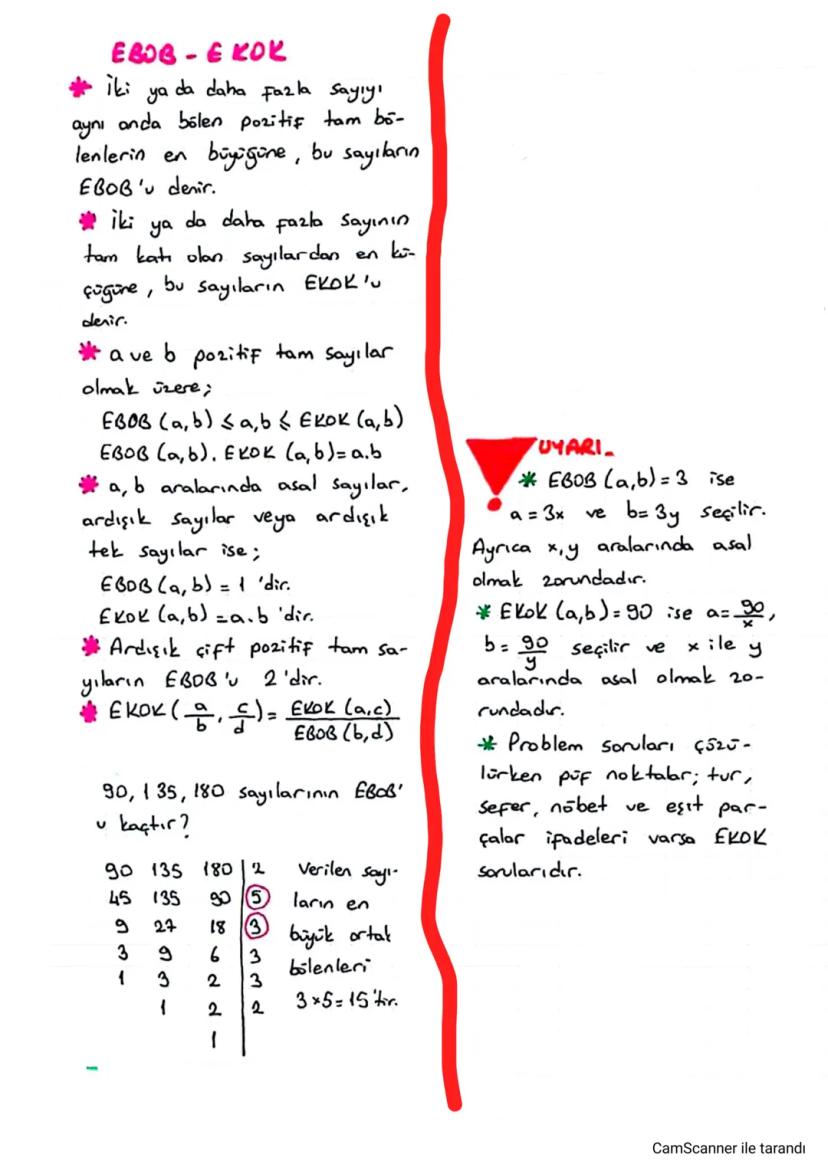 EBOB - EKOK
* İki ya da daha fazla sayıyı
aynı anda bölen pozitif tam bö-
lenlerin en büyüğüne, bu sayıların
EBOB'u denir.
* İki ya da daha fazla sayının
tam katı olan sayılardan en kü-
çüğüne, bu sayıların EKOK'u
denir.
* a ve b pozitif tam sayılar
olmak üzere;
EBOB (a,b) ≤ a,b ≤ EKOK (a,b)
EBOB (a,b). EKOK (a,b)=a.b
* a, b aralarında asal sayılar,
ardışık sayılar veya ardışık
tek sayılar ise;
EBOB (a,b) = 1 'dir.
EKOK (a,b) =a.b 'dir.
* Ardışık çift pozitif tam sa-
yıların EBOB'u 2'dir.
* EKOK(a/b, c/d)= EKOK (a,c)/EBOB (b,d)
90, 135, 180 sayılarının EBOB'
u kaçtır?
90 135 180 | 2 Verilen sayı-
45 135 90 | 5 ların en
9 27 18 | 3 büyük ortak
3 9 6 | 3 bölenleri
1 3 2 | 3
1 2 | 2 3x5=15'tir.
1
UYARI_
* EBOB (a,b)=3 ise
a=3x ve b=3y seçilir.
Ayrıca x,y aralarında asal
olmak zorundadır.
* EKOK (a,b)=90 ise a=90/x,
b=90/y seçilir ve x ile y
aralarında asal olmak zo-
rundadır.
* Problem soruları çözü-
lürken püf noktalar; tur,
sefer, nöbet ve eşit par-
çalar ifadeleri varsa EKOK
sorularıdır.
CamScanner ile tarandı